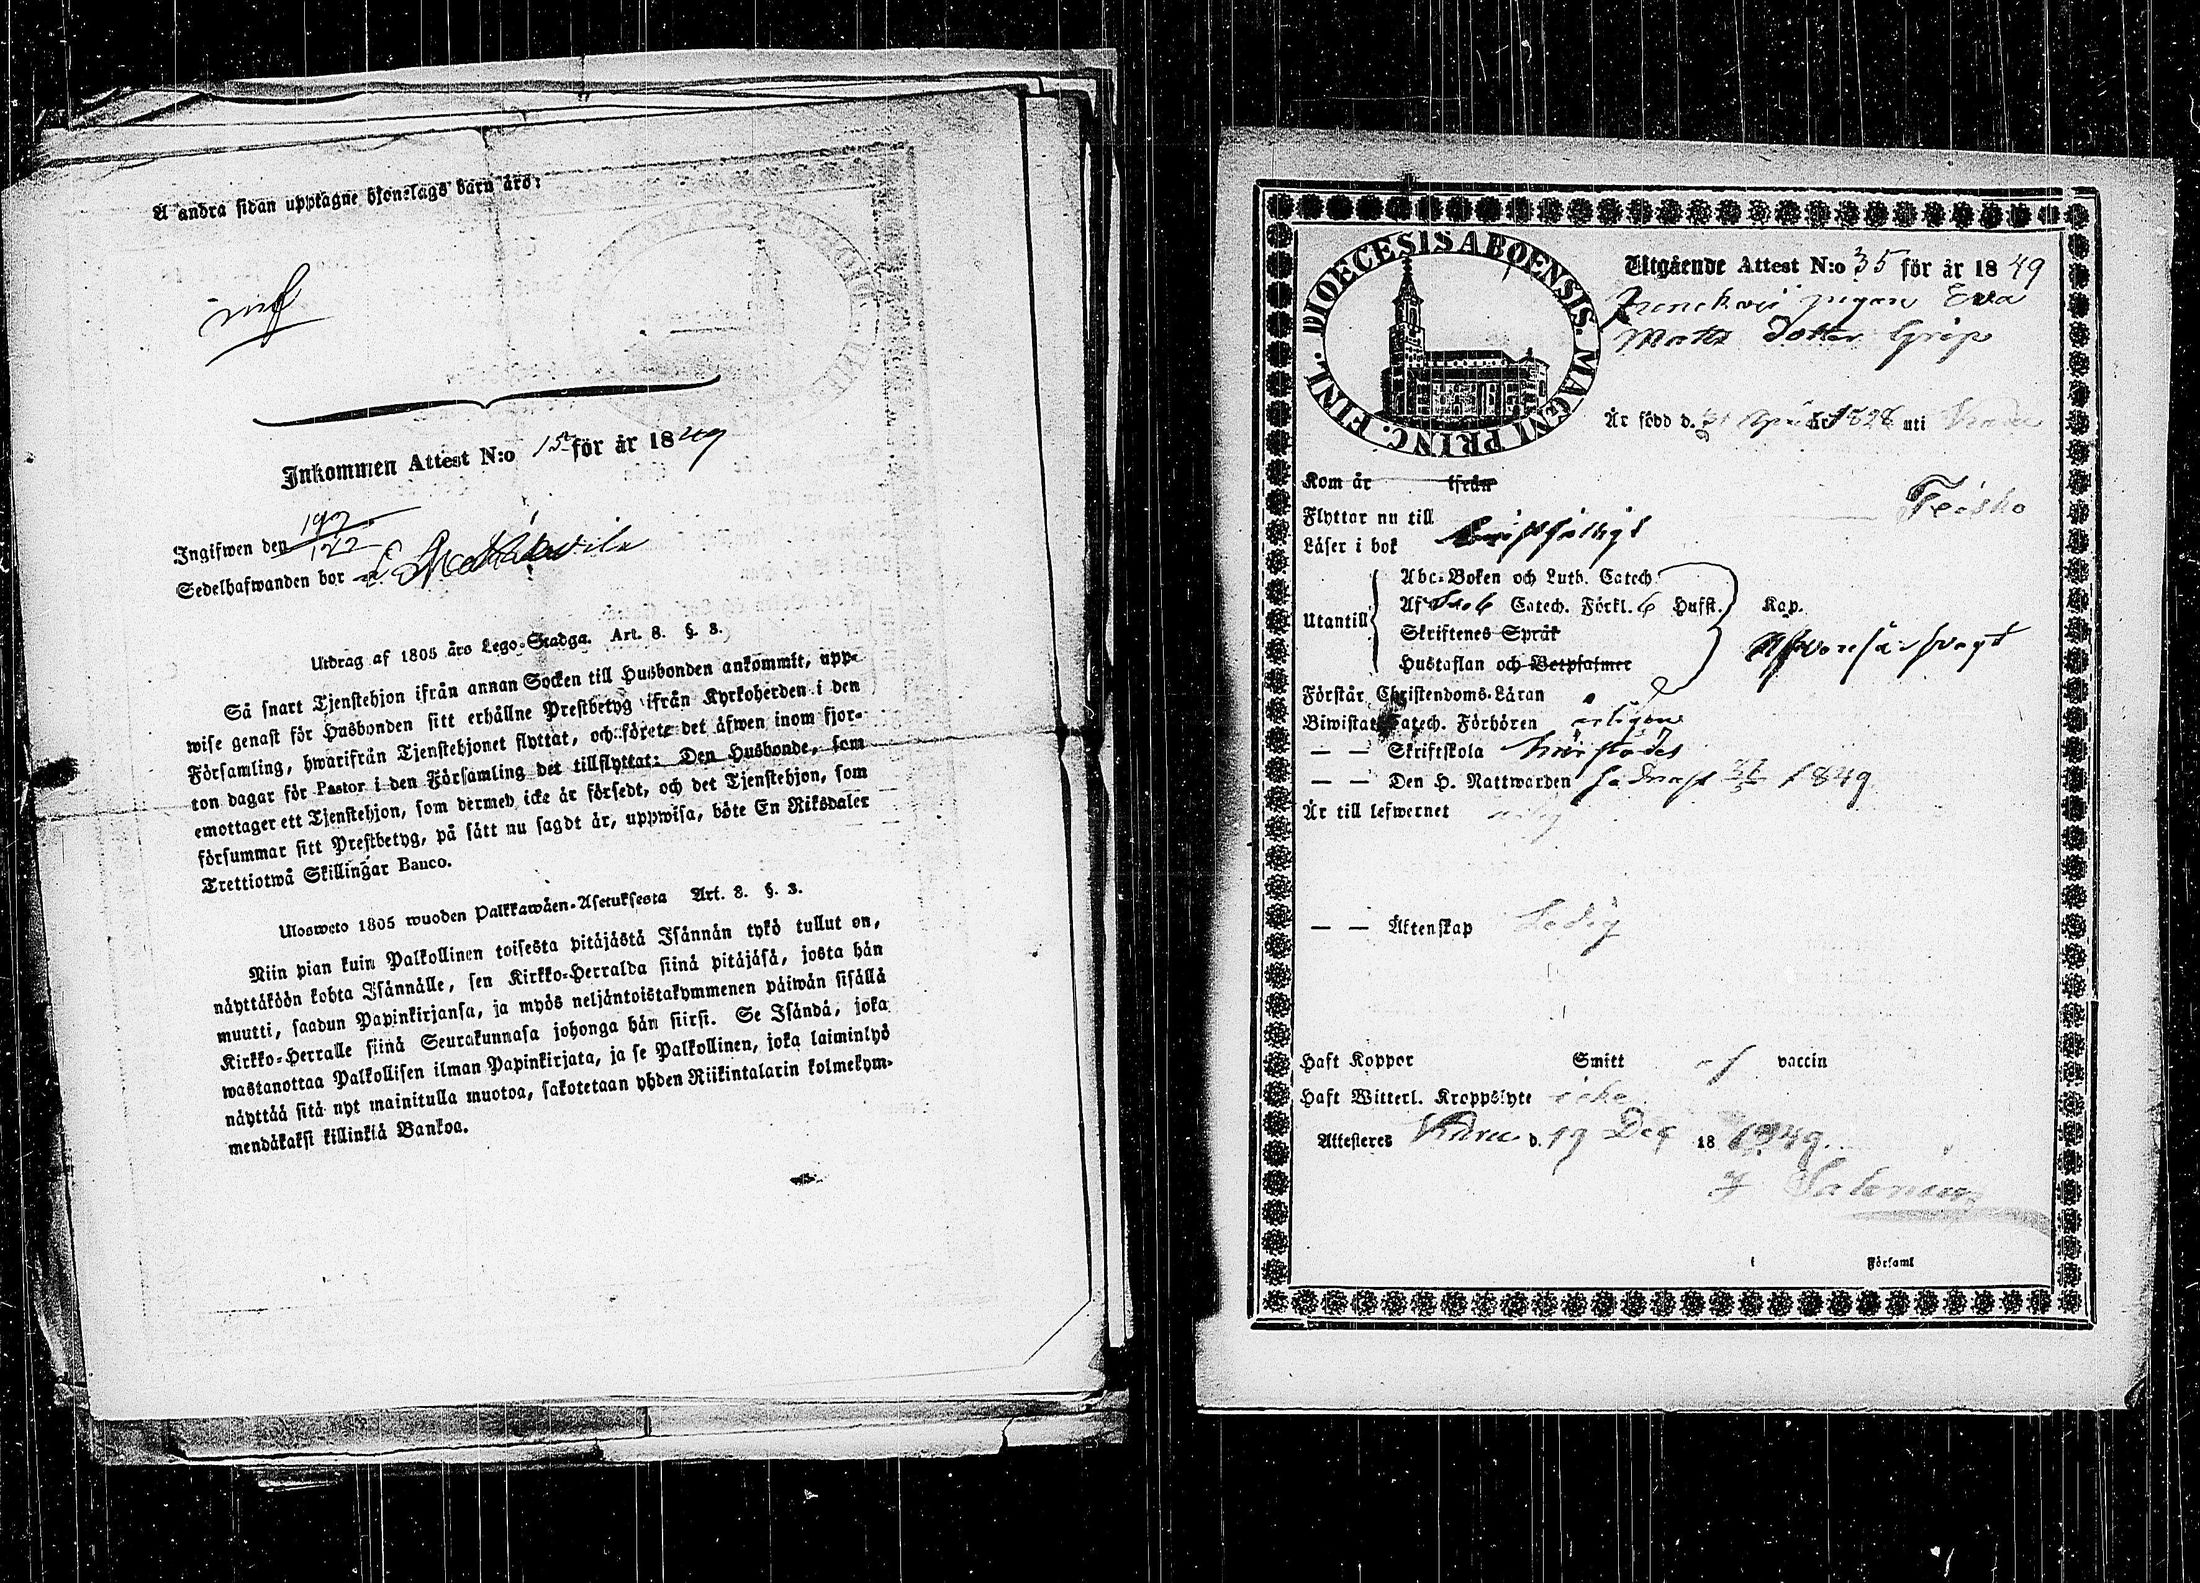 Å andra sidan upptagne hjonelags barn äro:
Inkommen Attest N:o 15 för år 1849
Ingifwen den 19/12
Sedelhafwanden bor
Utdrag af 1805 års Lego-Stadga. Art. 8. §. 3.
Så snart Tjenstehjon ifrån annan Socken till Husbonden ankommit, upp-
wise genast för Husbonden sitt erhållne Prestbetyg ifrån Kyrkoherden i den
Församling, hwarifrån Tjenstehjonet flyttat, och förete det äfwen inom fjor-
ton dagar för Pastor i den Församling det tillflyttat: Den Husbonde, som
emottager ett Tjenstehjon, som dermed icke är försedt, och det Tjenstehjon, som
försummar sitt Prestbetyg, på sätt nu sagdt är, uppwisa, böte En Riksdaler
Trettiotwå Skillingar Banco.
Ulosweto 1805 wuoden Palkkawäen-Asetuksesta Art. 8. §. 3.
Niin pian kuin Palkollinen toisesta pitäjästä Isännän tykö tullut on,
näyttäköön kohta Isännälle, sen Kirkko-Herralda siinä pitäjäsä, josta hän
muutti, saadun Papinkirjansa, ja myös neljäntoistakymmenen päiwän sisällä
Kirkko-Herralle siinä Seurakunnasa johonga hän siirsi. Se Isändä, joka
wastanottaa Palkollisen ilman Papinkirjata, ja se Palkollinen, joka laiminlyö
näyttää sitä nyt mainitulla muotoa, sakotetaan yhden Riikintalarin kolmekym-
mendäkaksi killinkiä Bankoa.
DIOECESIS ABOENSIS. MAGNI PRINC. FINL.
Utgående Attest N:o 35 för år 1849
pigan Eva
Matts Dotter Grip
Är född d. April 1828 uti
Kom år ifrån
Flyttar nu till Teisko
Läser i bok
Utantill
Abc-Boken och Luth. Catech.
Af Catech. Förkl. 6 Hufst. Kap.
Skriftenes Språk
Hustaflan och Botpsalmer
Förstår Christendoms-Läran
Biwistat Catech. Förhören årligen
— — Skriftskola härstädes
— — Den H. Nattwarden sednast 1849
Är till lefwernet
— — Äktenskap Ledig
Haft Koppor Smitt af vaccin
Haft Witterl. Kroppslyte icke
Attesteres Kuru d. 19 Dec 18 1849.
i Församl